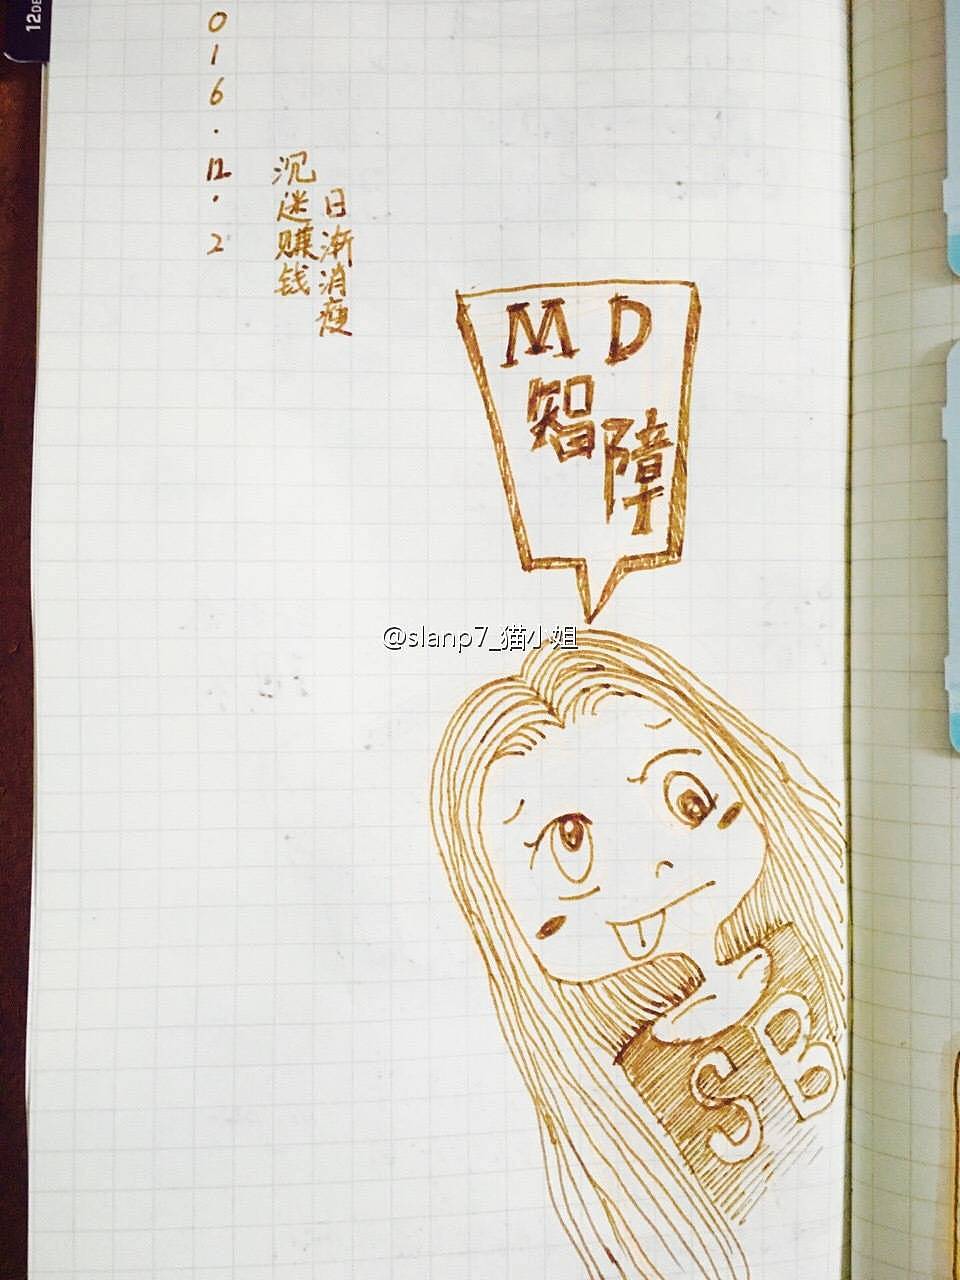 12DE
016.12.2
沉迷赚钱
日渐消瘦
MD
智障
@slanp7_猫小姐
SB